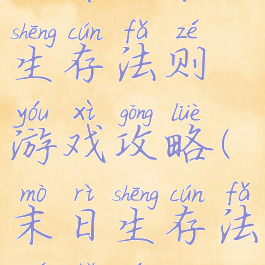 shēng cún fǎ zé
生存法则
yóu xì gōng lüè
游戏攻略(
mò rì shēng cún fǎ
末日生存法